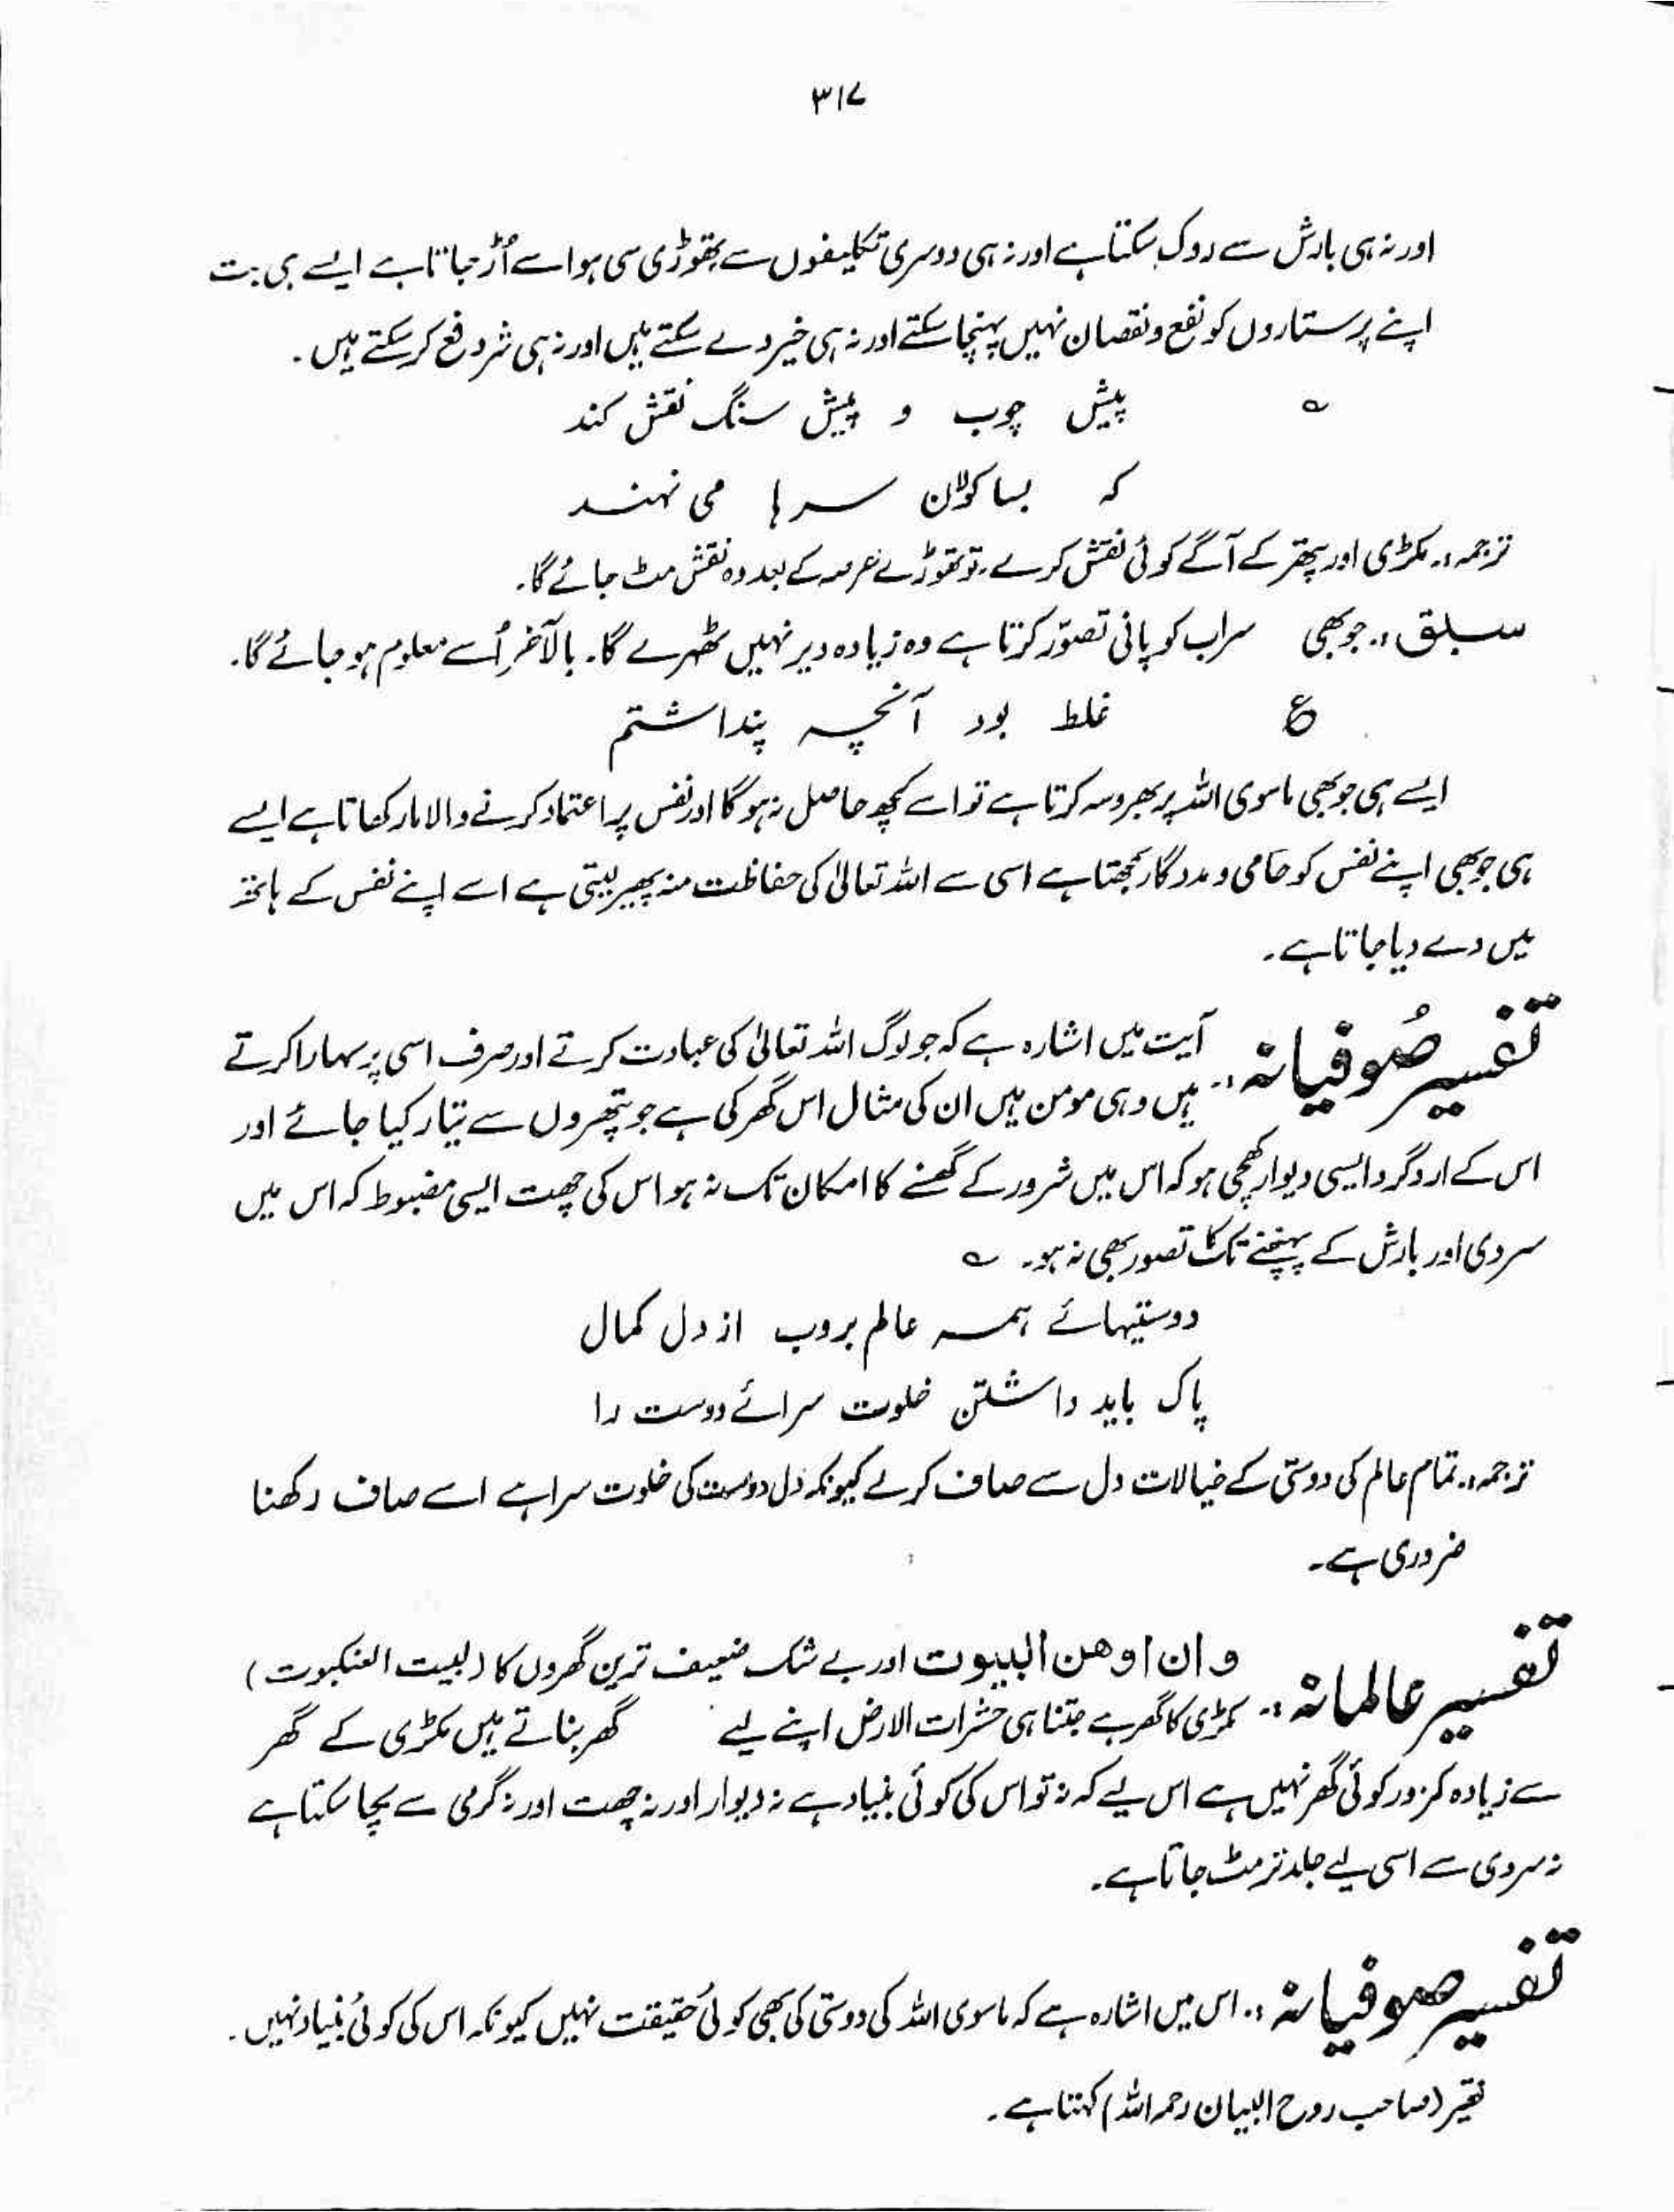 ۳۱۷
اور نہ ہی بارش سے روک سکتا ہے اور نہ ہی دوسری تکلیفوں سے تھوڑی سی ہوا سے اُڑ جاتا ہے ایسے ہی بت
اپنے پرستاروں کو نفع و نقصان نہیں پہنچا سکتے اور نہ ہی خیر دے سکتے ہیں اور نہ ہی شر دفع کر سکتے ہیں ۔
؎ پیش چوب و پیش سنگ نقش کند
کہ بسا کولان سرہا می نہند
ترجمہ:۔ مکڑی اور پتھر کے آگے کوئی نقش کرے ۔ تو تھوڑے عرصہ کے بعد وہ نقش مٹ جائے گا۔
سبق :۔ جو بھی سراب کو پانی تصوّر کرتا ہے وہ زیادہ دیر نہیں ٹھہرے گا۔ بالآخر اُسے معلوم ہو جائے گا۔
ع غلط بود آنچہ پنداشتم
ایسے ہی جو بھی ماسوی اللہ پر بھروسہ کرتا ہے تو اسے کچھ حاصل نہ ہو گا اور نفس پر اعتماد کرنے والا مار کھاتا ہے ایسے
ہی جو بھی اپنے نفس کو حامی و مددگار سمجھتا ہے اسی سے اللہ تعالیٰ کی حفاظت منہ پھیر لیتی ہے اسے اپنے نفس کے ہاتھ
میں دے دیا جاتا ہے ۔
تفسیر صُوفیانہ :۔ آیت میں اشارہ ہے کہ جو لوگ اللہ تعالیٰ کی عبادت کرتے اور صرف اسی پر سہارا کرتے
ہیں وہی مومن ہیں ان کی مثال اس گھر کی ہے جو پتھروں سے تیار کیا جائے اور
اس کے اردگرد ایسی دیوار کھچی ہو کہ اس میں شرور کے گھسنے کا امکان تک نہ ہو اس کی چھت ایسی مضبوط کہ اس میں
سردی اور بارش کے پہنچنے تک کا تصور بھی نہ ہو۔ ؎
دوستیہائے ہمہ عالم بروب از دل کمال
پاک باید داشتن خلوت سرائے دوست را
ترجمہ:۔ تمام عالم کی دوستی کے خیالات دل سے صاف کر لے کیونکہ دل دوست کی خلوت سرا ہے اسے صاف رکھنا
ضروری ہے۔
تفسیر عالمانہ :۔ و ان اوھن البیوت اور بے شک ضعیف ترین گھروں کا (لبیت العنکبوت)
مکڑی کا گھر ہے جتنا ہی حشرات الارض اپنے لیے گھر بناتے ہیں مکڑی کے گھر
سے زیادہ کمزور کوئی گھر نہیں ہے اس لیے کہ نہ تو اس کی کوئی بنیاد ہے نہ دیوار اور نہ چھت اور نہ گرمی سے بچا سکتا ہے
نہ سردی سے اسی لیے جلد تر مٹ جاتا ہے۔
تفسیر صوفیانہ :۔ اس میں اشارہ ہے کہ ماسوی اللہ کی دوستی کی بھی کوئی حقیقت نہیں کیونکہ اس کی کوئی بنیاد نہیں ۔
فقیر (صاحب روح البیان رحمہ اللہ) کہتا ہے ۔